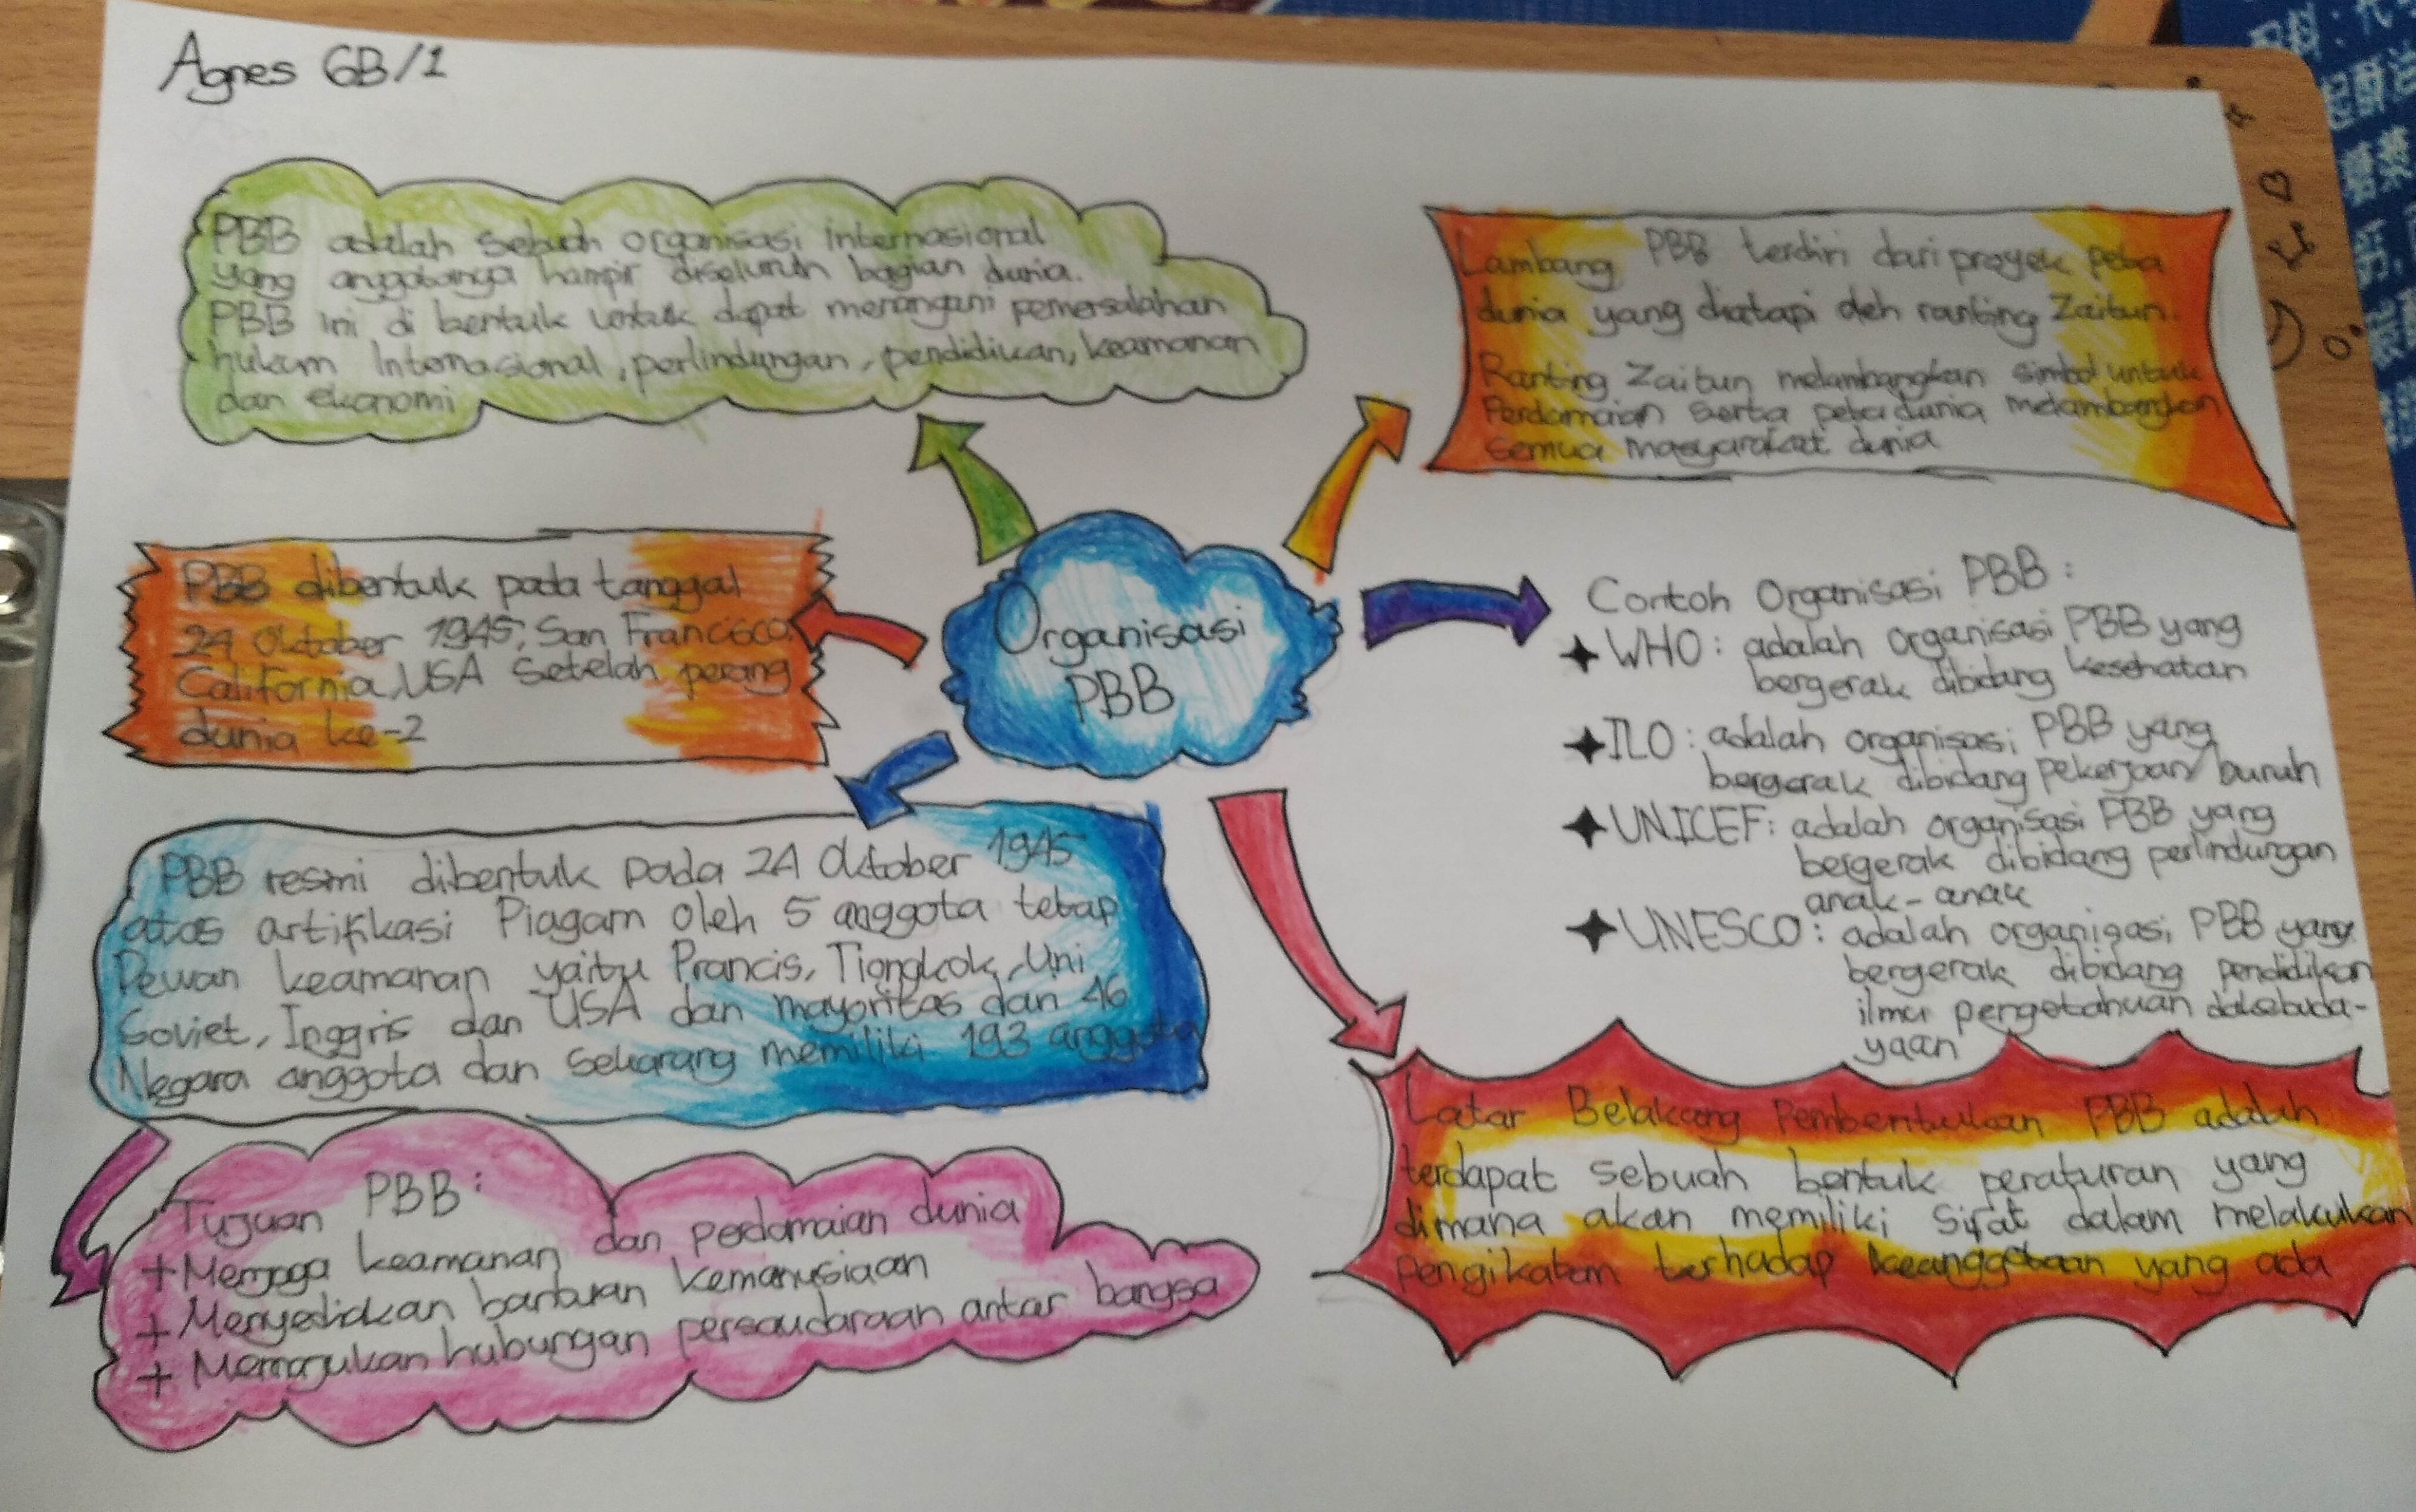 Agnes 6B/1
PBB adalah sebuah organisasi internasional
yang anggotanya hampir diseluruh bagian dunia.
PBB ini di bentuk untuk dapat menangani pemersalahan
hukum Internasional, perlindungan, pendidikan, keamanan
dan ekonomi
Lambang PBB terdiri dari proyek peta
dunia yang diatapi oleh ranting Zaitun.
Ranting Zaitun melambangkan simbol untuk
Perdamaian serta peta dunia melambangkan
semua masyarakat dunia
PBB dibentuk pada tanggal
24 Oktober 1945, San Francisco,
California, USA setelah perang
dunia ke-2
Organisasi
PBB
Contoh Organisasi PBB :
WHO : adalah organisasi PBB yang
bergerak dibidang kesehatan
ILO : adalah organisasi PBB yang
bergerak dibidang pekerjaan/buruh
UNICEF : adalah organisasi PBB yang
bergerak dibidang perlindungan
anak-anak
UNESCO : adalah organisasi PBB yang
bergerak dibidang pendidikan
ilmu pengetahuan
yaan
PBB resmi dibentuk pada 24 Oktober 1945
atas artifikasi Piagam oleh 5 anggota tetap
Dewan keamanan yaitu Prancis, Tiongkok, Uni
Soviet, Inggris dan USA dan mayoritas dan 46
Negara anggota dan sekarang memiliki 193 anggota
Tujuan PBB :
+ Menjaga keamanan dan perdamaian dunia
+ Menyediakan bantuan kemanusiaan
+ Memajukan hubungan persaudaraan antar bangsa
Latar Belakang Pembentukan PBB adalah
terdapat sebuah bentuk peraturan yang
dimana akan memiliki sifat dalam melakukan
pengikatan terhadap keanggotaan yang ada